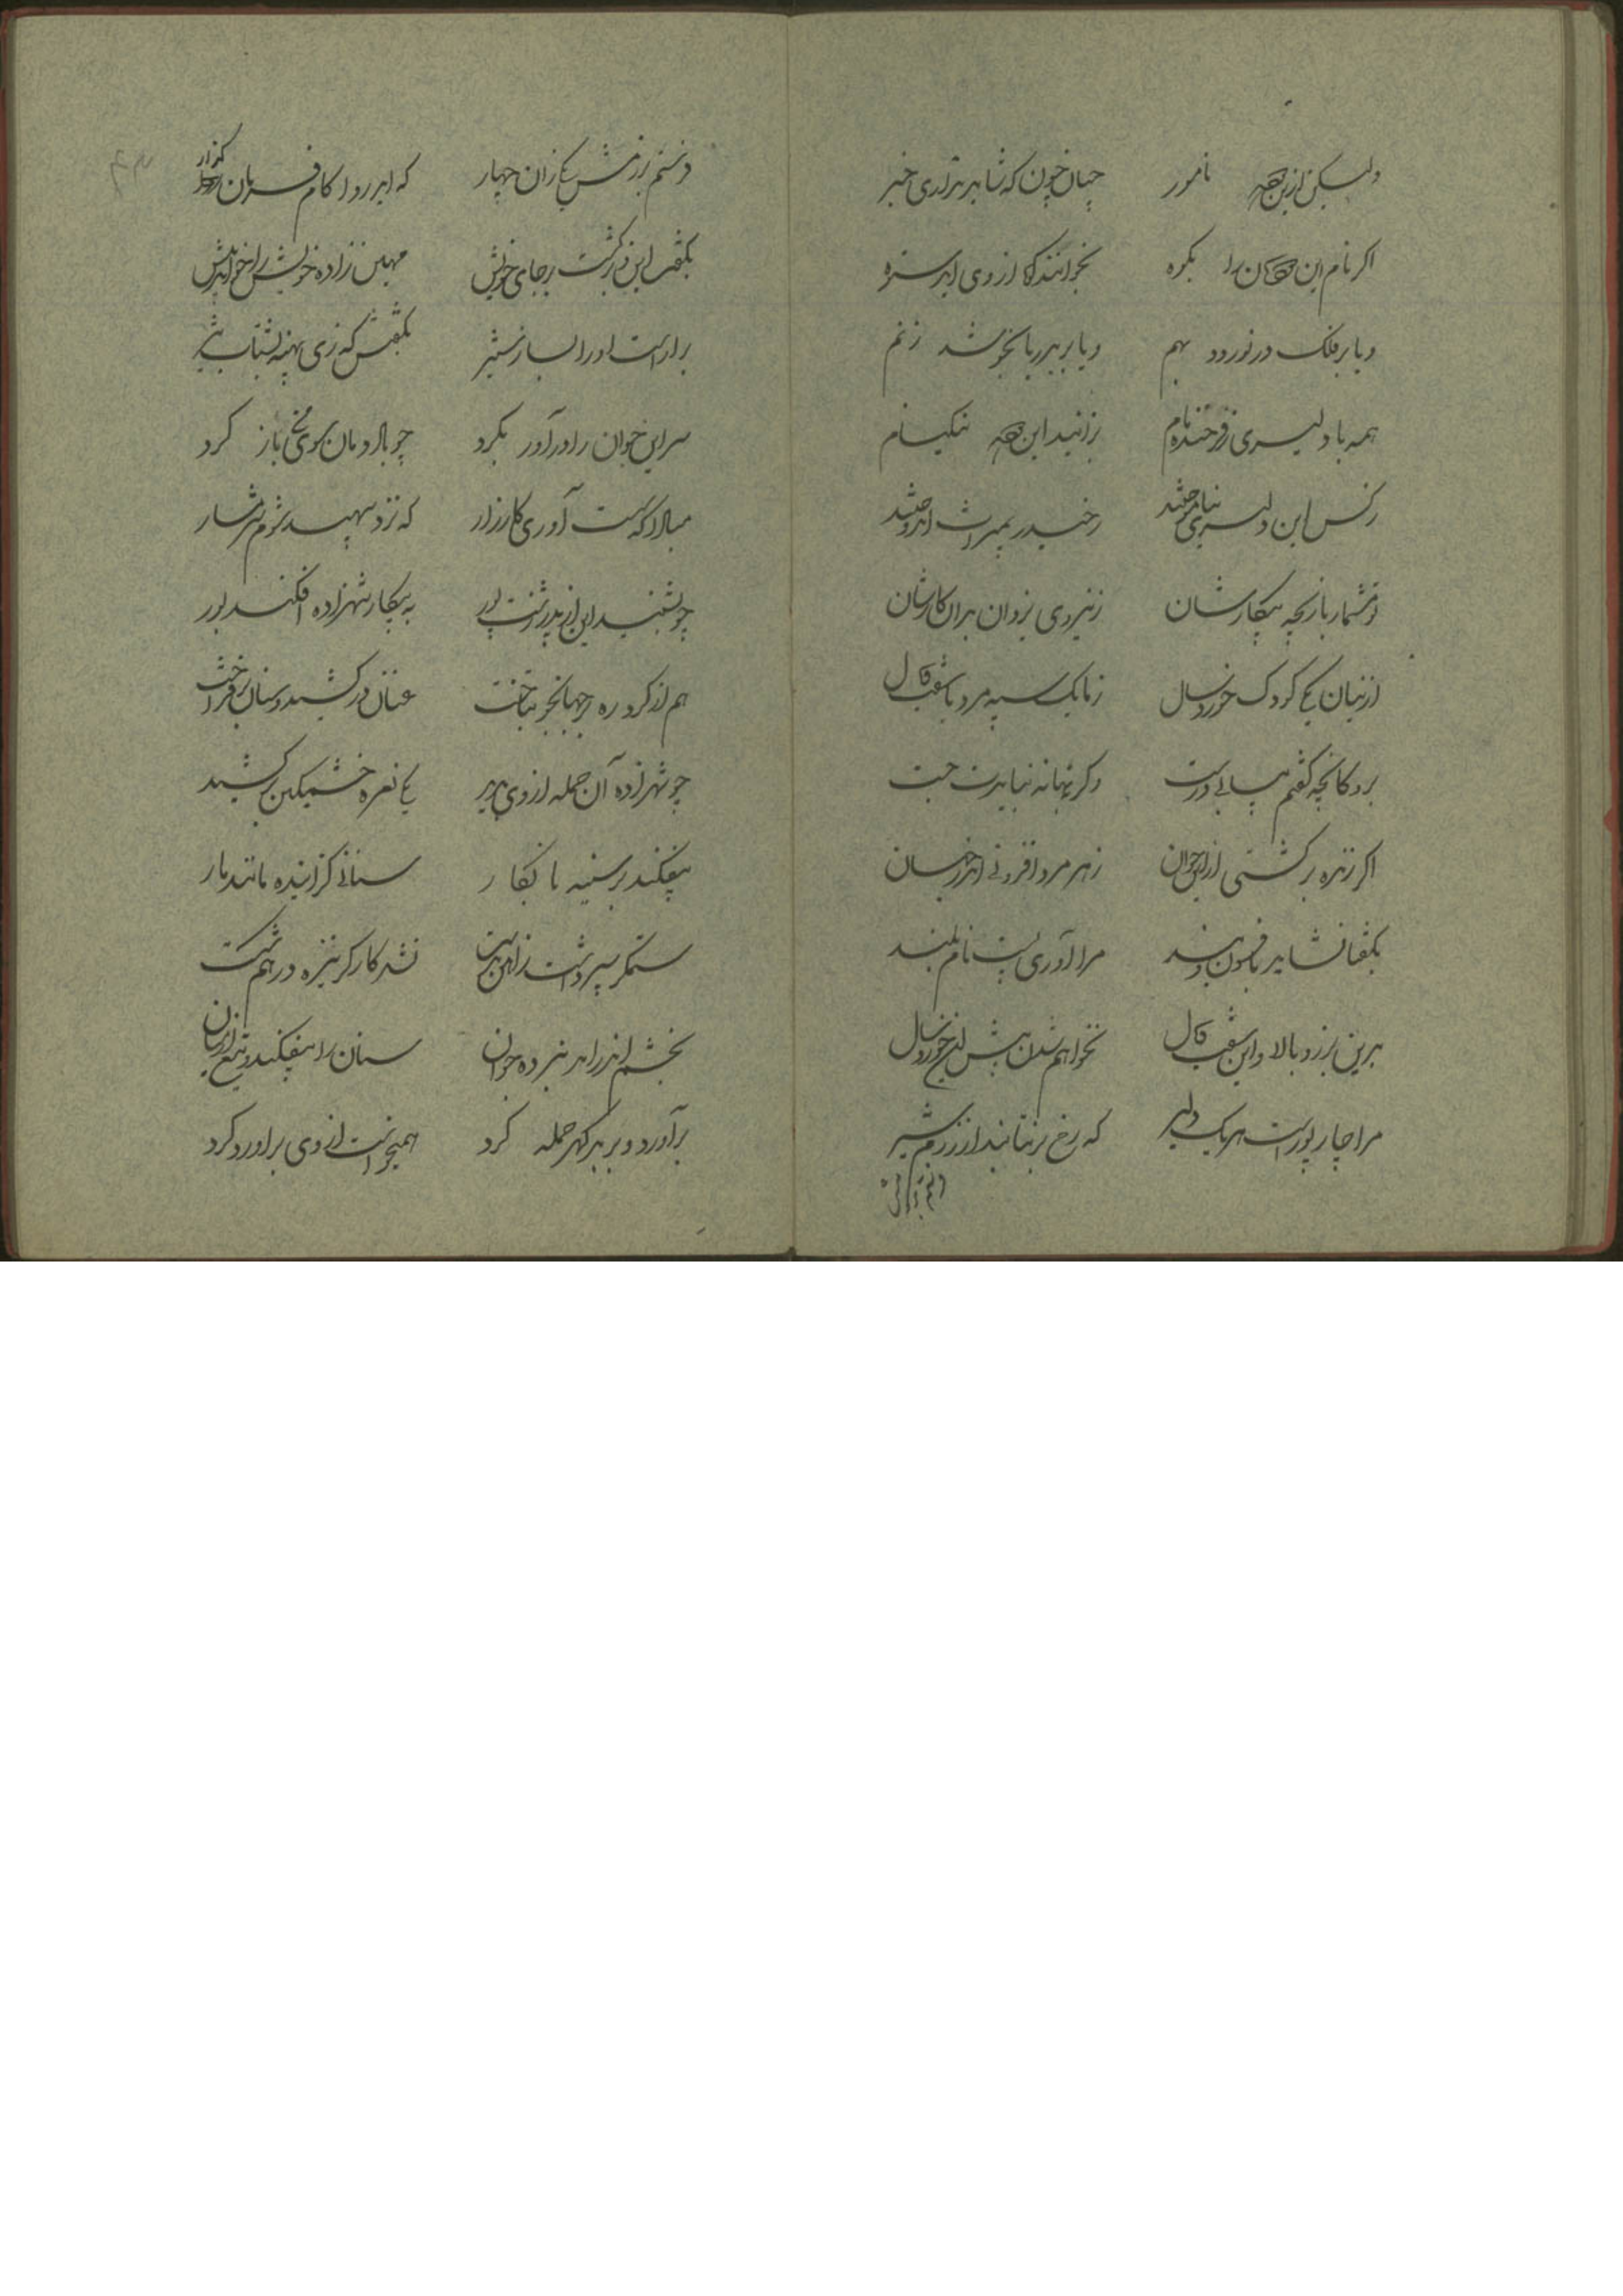 ولیکن ازین مهه نامور چنان چون که شاید نداری خبر
اگر نام این مهکان را بکوه بخوانند کاه از وی اید ستوه
و یا بر فلک در نوردد بهم و یا بر به دریا بخوشد ز نم
همه با دلیری ز فرخنده مام بزانید این مهه نیکنام
ز کس این دلیری
تو مشمار بازیچه پیکارشان ز نیروی یزدان بدان کارشان
ازینان یکی کودک خوردسال ز ما یک سپه مرد با سفت و یال
برو کانچه گفتم بپای درست وگرنه بهانه نبایدت جست
اگر زنده برگشتی از این جوان ز هر مرد افزونی اندر خسان
بگفتا نشاید به افسون و بند مرا آوری پست نام بلند
بدین برز و بالا و این سفت و یال نخواهم شدن پیش این خوردسال
مرا چار پور است هریک دلیر که رخ برنتابند از رزم شیر
فرستم برزمش یکی زان چهار که اید روا کام فرمان گذار
بگفت این و برگشت بر جای خویش مهین زاده خویش را خواند پیش
بیاراست او را بساز
سر این جوان را درآور بگرد چو باد دمان سوی من باز گرد
مبادا که سست آوری کارزار که نزد سپهبد شوم شرمسار
چو بشنید این از پدر زشت پور به پیکار شهزاده افکند بور
هم از گرد ره بر جهانجو بتاخت عنان در کشید و سنان برفراخت
چو شهزاده آن حمله از وی بدید یکی نعره خشمگین برکشید
بیفکند بر سینه نابکار سنانی گزاینده مانند مار
ستمگر سپر داشت ز آهن بدست نشد کارگر نیزه درهم شکست
بخشم اندر امد نبرده جوان سنان را بیفکند و تیغ از میان
برآورد و بر بدگهر حمله کرد همیخواست از وی براورد گرد